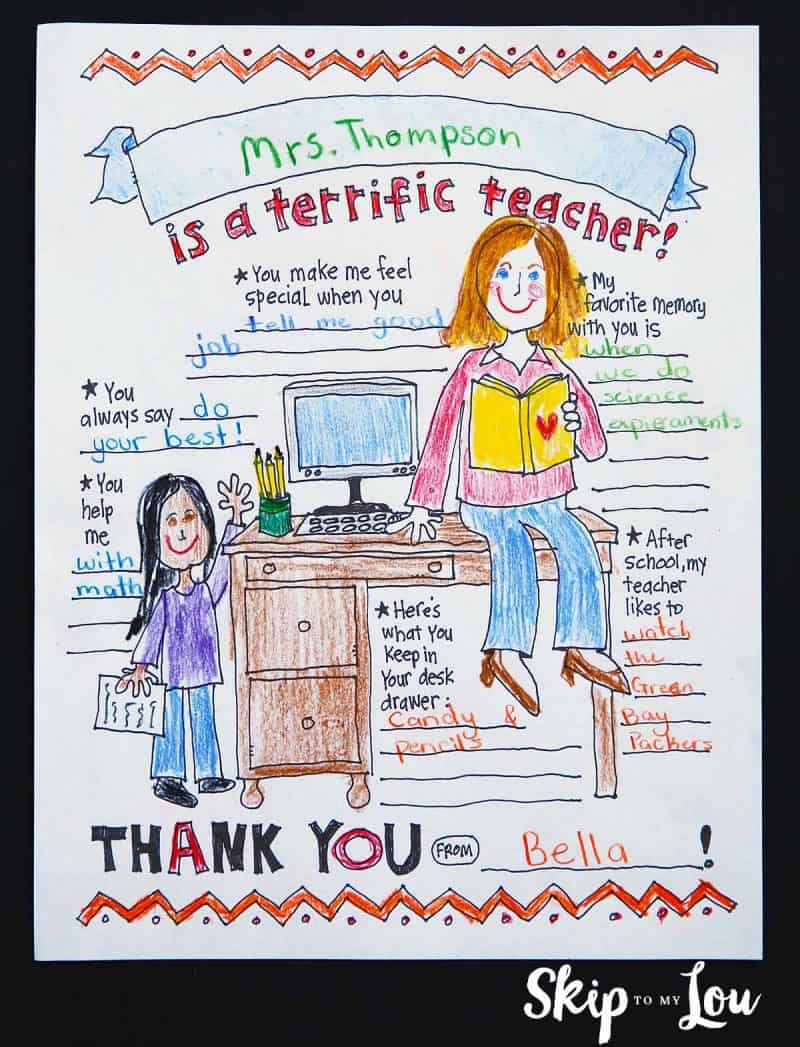 Mrs. Thompson
is a terrific teacher!
★ You make me feel
special when you
tell me good
job
★ My
favorite memory
with you is
when
we do
science
expieraments
★ You
always say do
your best!
★ You
help
me
with
math
★ Here's
what you
keep in
your desk
drawer:
Candy &
pencil's
★ After
school, my
teacher
likes to
watch
the
Green
Bay
Packers
THANK YOU FROM Bella !
Skip TO MY Lou